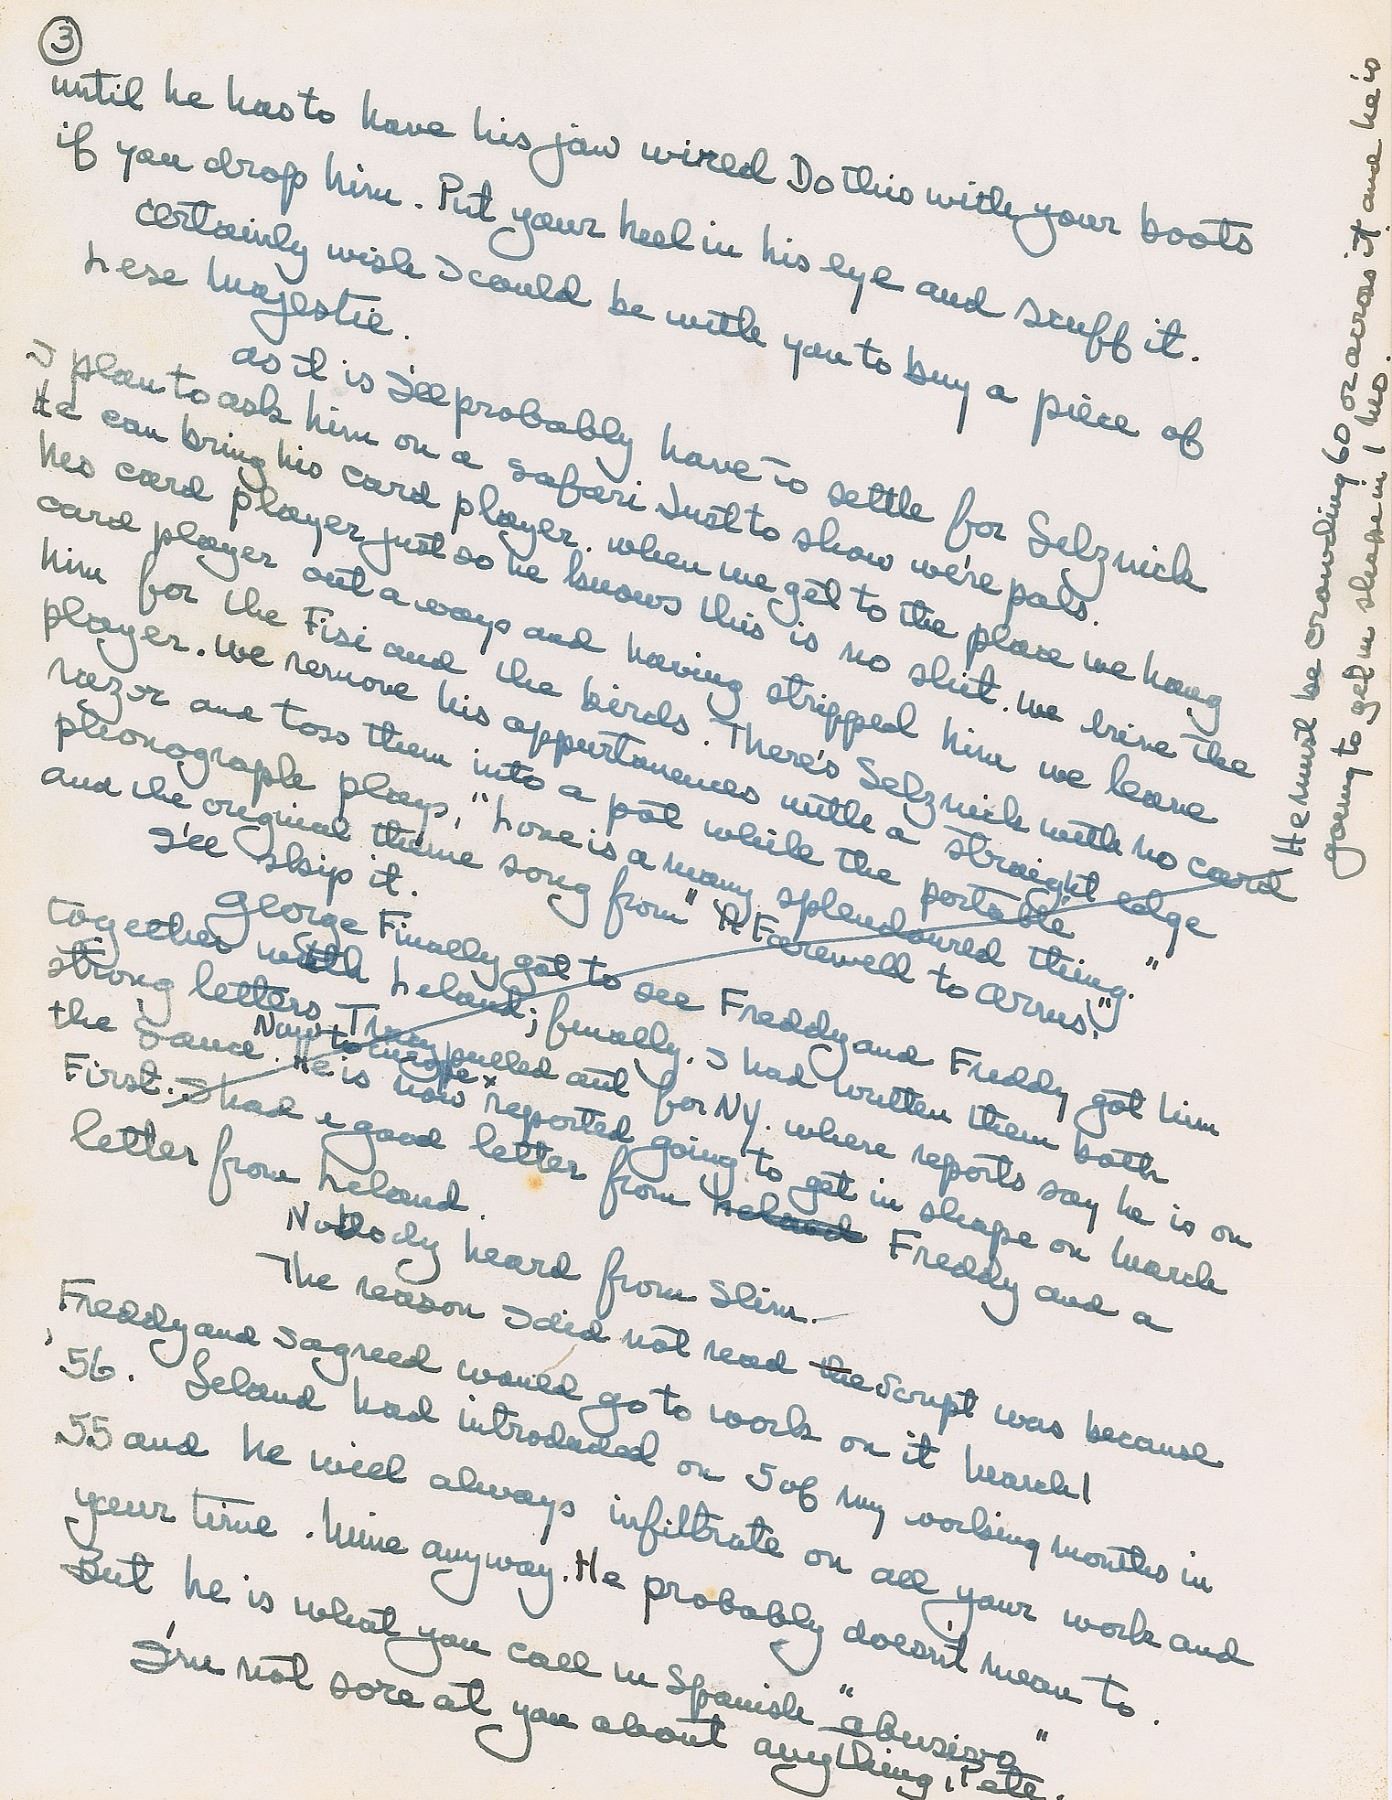 ③
until he has to have his jaw wired Do this with your boots
if you drop him. Put your heel in his eye and scuff it.
certainly wish I could be with you to buy a piece of
Lese Majestie.
as it is I'll probably have to settle for Selznick
I plan to ask him on a safari Just to show we're pals.
He can bring his card player. when we get to the place we hang
his card player just so he knows this is no shit. we brine the
card player out a ways and having stripped him we leave
him for the Fisi and the birds. There's Selznick with no card
player. we remove his appurtanences with a straight edge
razor and toss them into a pot while the portable
phonograph plays, "Love is a many splendoured thing."
and the original theme song from "A Farewell to Arms."
I'll skip it.
George Finally got to see Freddy and Freddy got him
together with Leland; finally. I had written them both
strong letters They pulled out for NY. where reports say he is on
the sauce. He is now reported going to get in shape on March
Now to
First. I had a good letter from Leland Freddy and a
letter from Leland.
Nobody heard from Slim.
The reason I did not read the script was because
Freddy and I agreed would go to work on it March 1
'56. Leland had introduded on 5 of my working months in
55 and he will always infiltrate on all your work and
your time. Mine anyway. He probably doesn't mean to.
But he is what you call in Spanish "abusivo"
I'm not sore at you about anything, Pete.
He must be crowding 60 or across it and he is
going to get in shape in 1 mo.